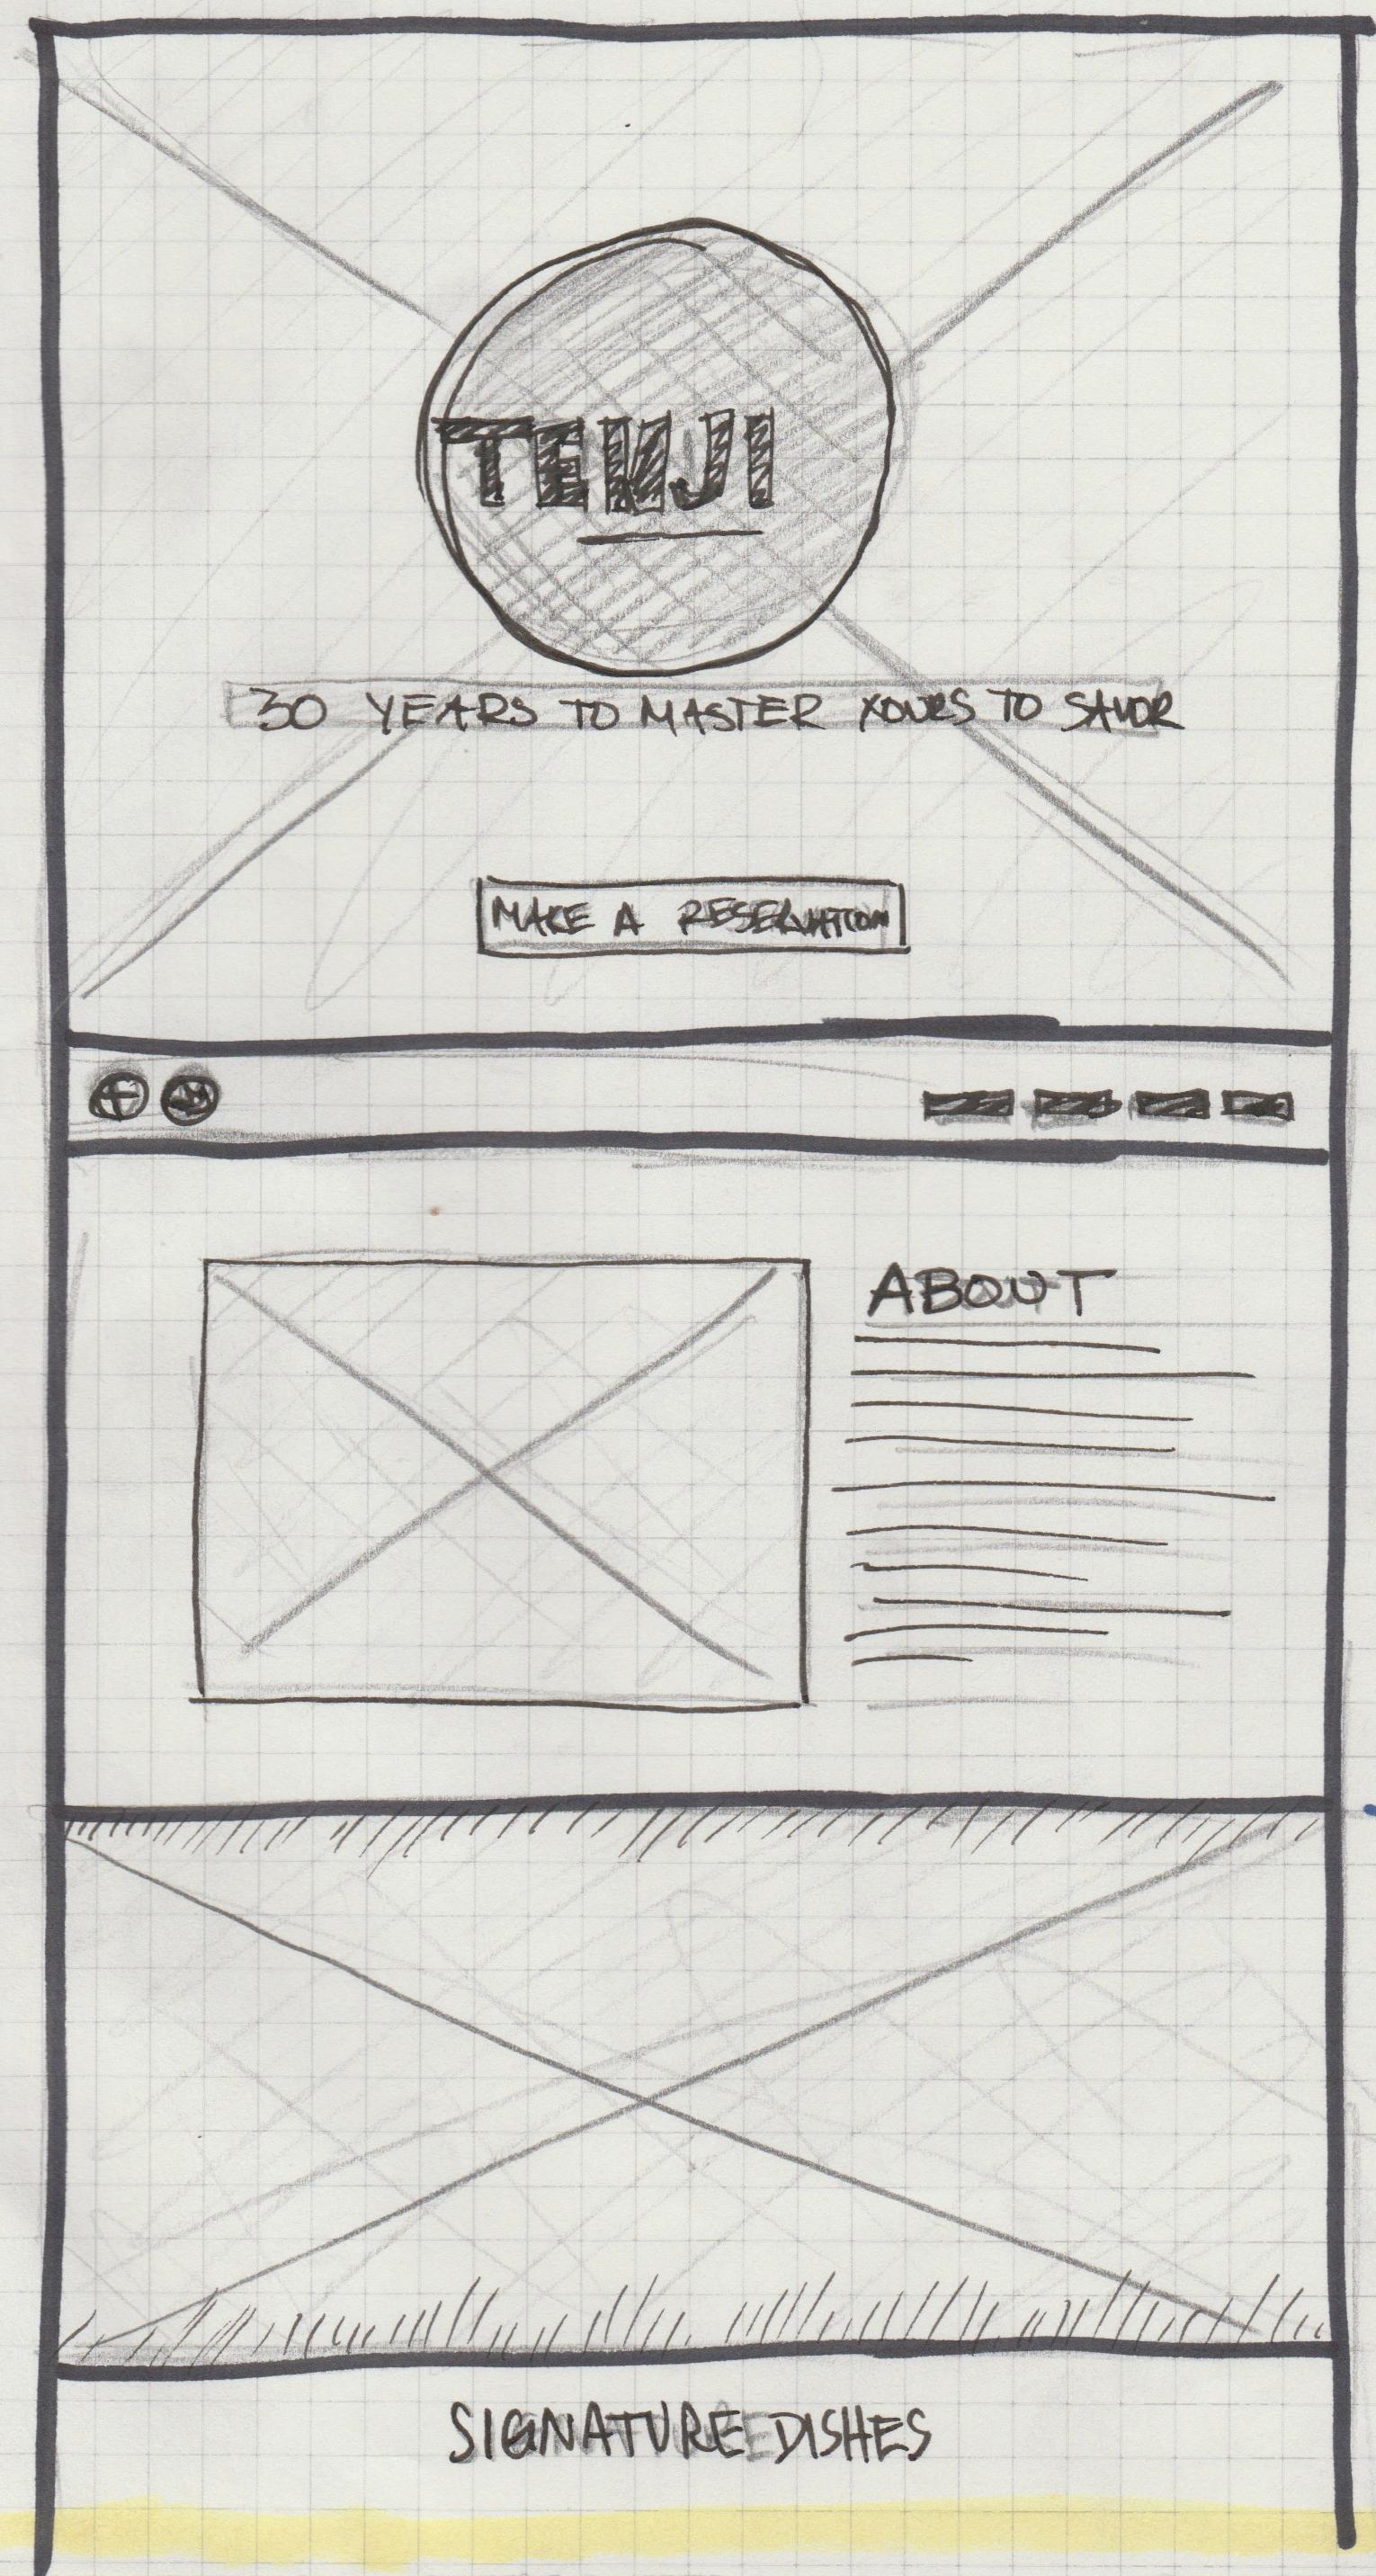 TENJI
30 YEARS TO MASTER YOURS TO SAVOR
MAKE A RESERVATION
ABOUT
SIGNATURE DISHES